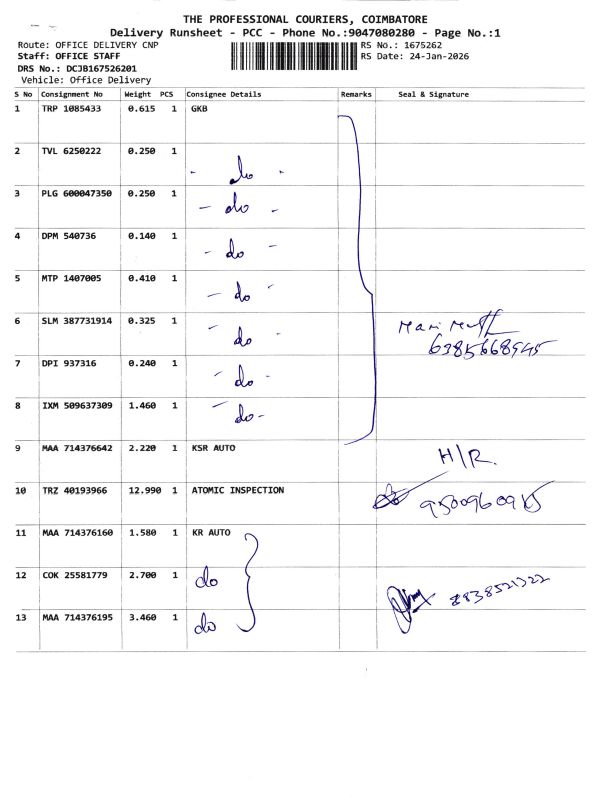 THE PROFESSIONAL COURIERS, COIMBATORE
Delivery Runsheet - PCC - Phone No.:9047080280 - Page No.:1
Route: OFFICE DELIVERY CNP RS No.: 1675262
Staff: OFFICE STAFF RS Date: 24-Jan-2026
DRS No.: DCJB167526201
Vehicle: Office Delivery
S No Consignment No Weight PCS Consignee Details Remarks Seal & Signature
1 TRP 1085433 0.615 1 GKB
2 TVL 6250222 0.250 1 - do -
3 PLG 600047350 0.250 1 - do -
4 DPM 540736 0.140 1 - do -
5 MTP 1407005 0.410 1 - do -
6 SLM 387731914 0.325 1 - do -
7 DPI 937316 0.240 1 - do -
8 IXM 509637309 1.460 1 - do -
9 MAA 714376642 2.220 1 KSR AUTO H/R.
10 TRZ 40193966 12.990 1 ATOMIC INSPECTION
11 MAA 714376160 1.580 1 KR AUTO
12 COK 25581779 2.700 1 do
13 MAA 714376195 3.460 1 do